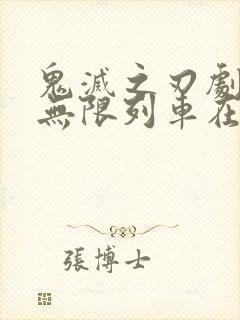 鬼滅之刃劇
無限列車在
張博士